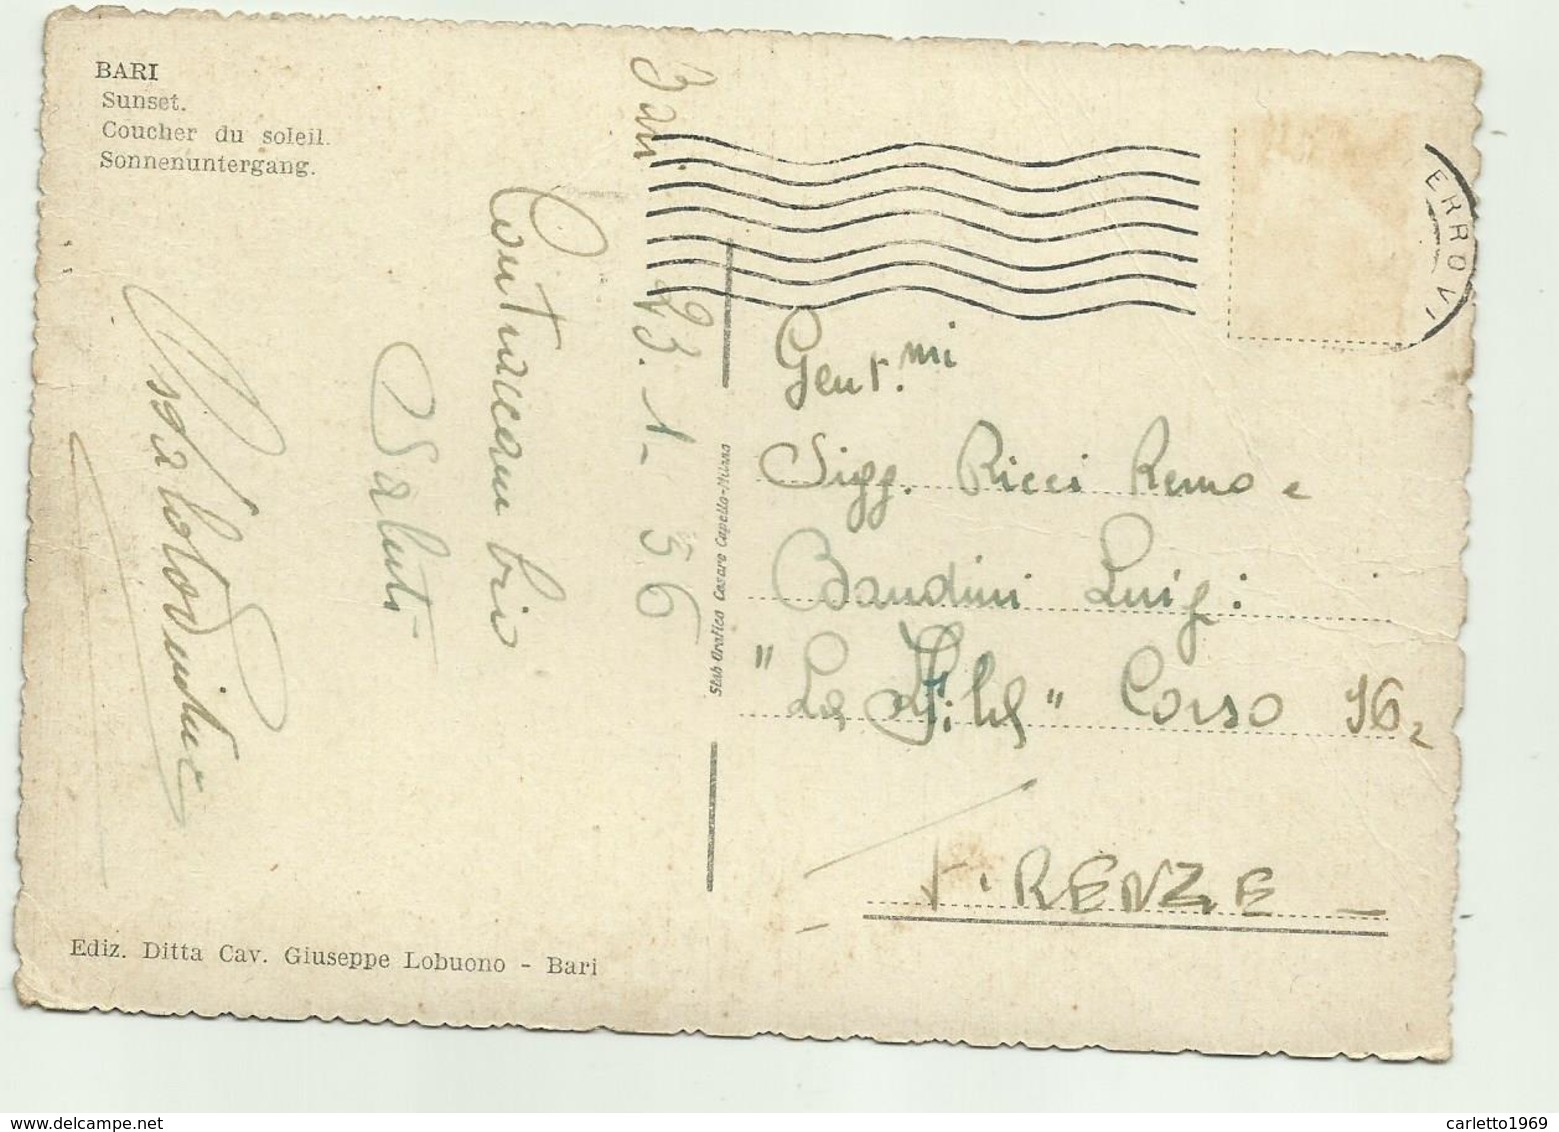 BARI
Sunset.
Coucher du soleil.
Sonnenuntergang.
Bari. 23.1-56
Contraccambio
Saluti
Stab Grafico Cesare Capello-Milano
ERROVI
Gent.mi
Sigg. Ricci Remo e
Bandini Luigi
"La Fila" Corso 16
FIRENZE -
Ediz. Ditta Cav. Giuseppe Lobuono - Bari
carletto1969